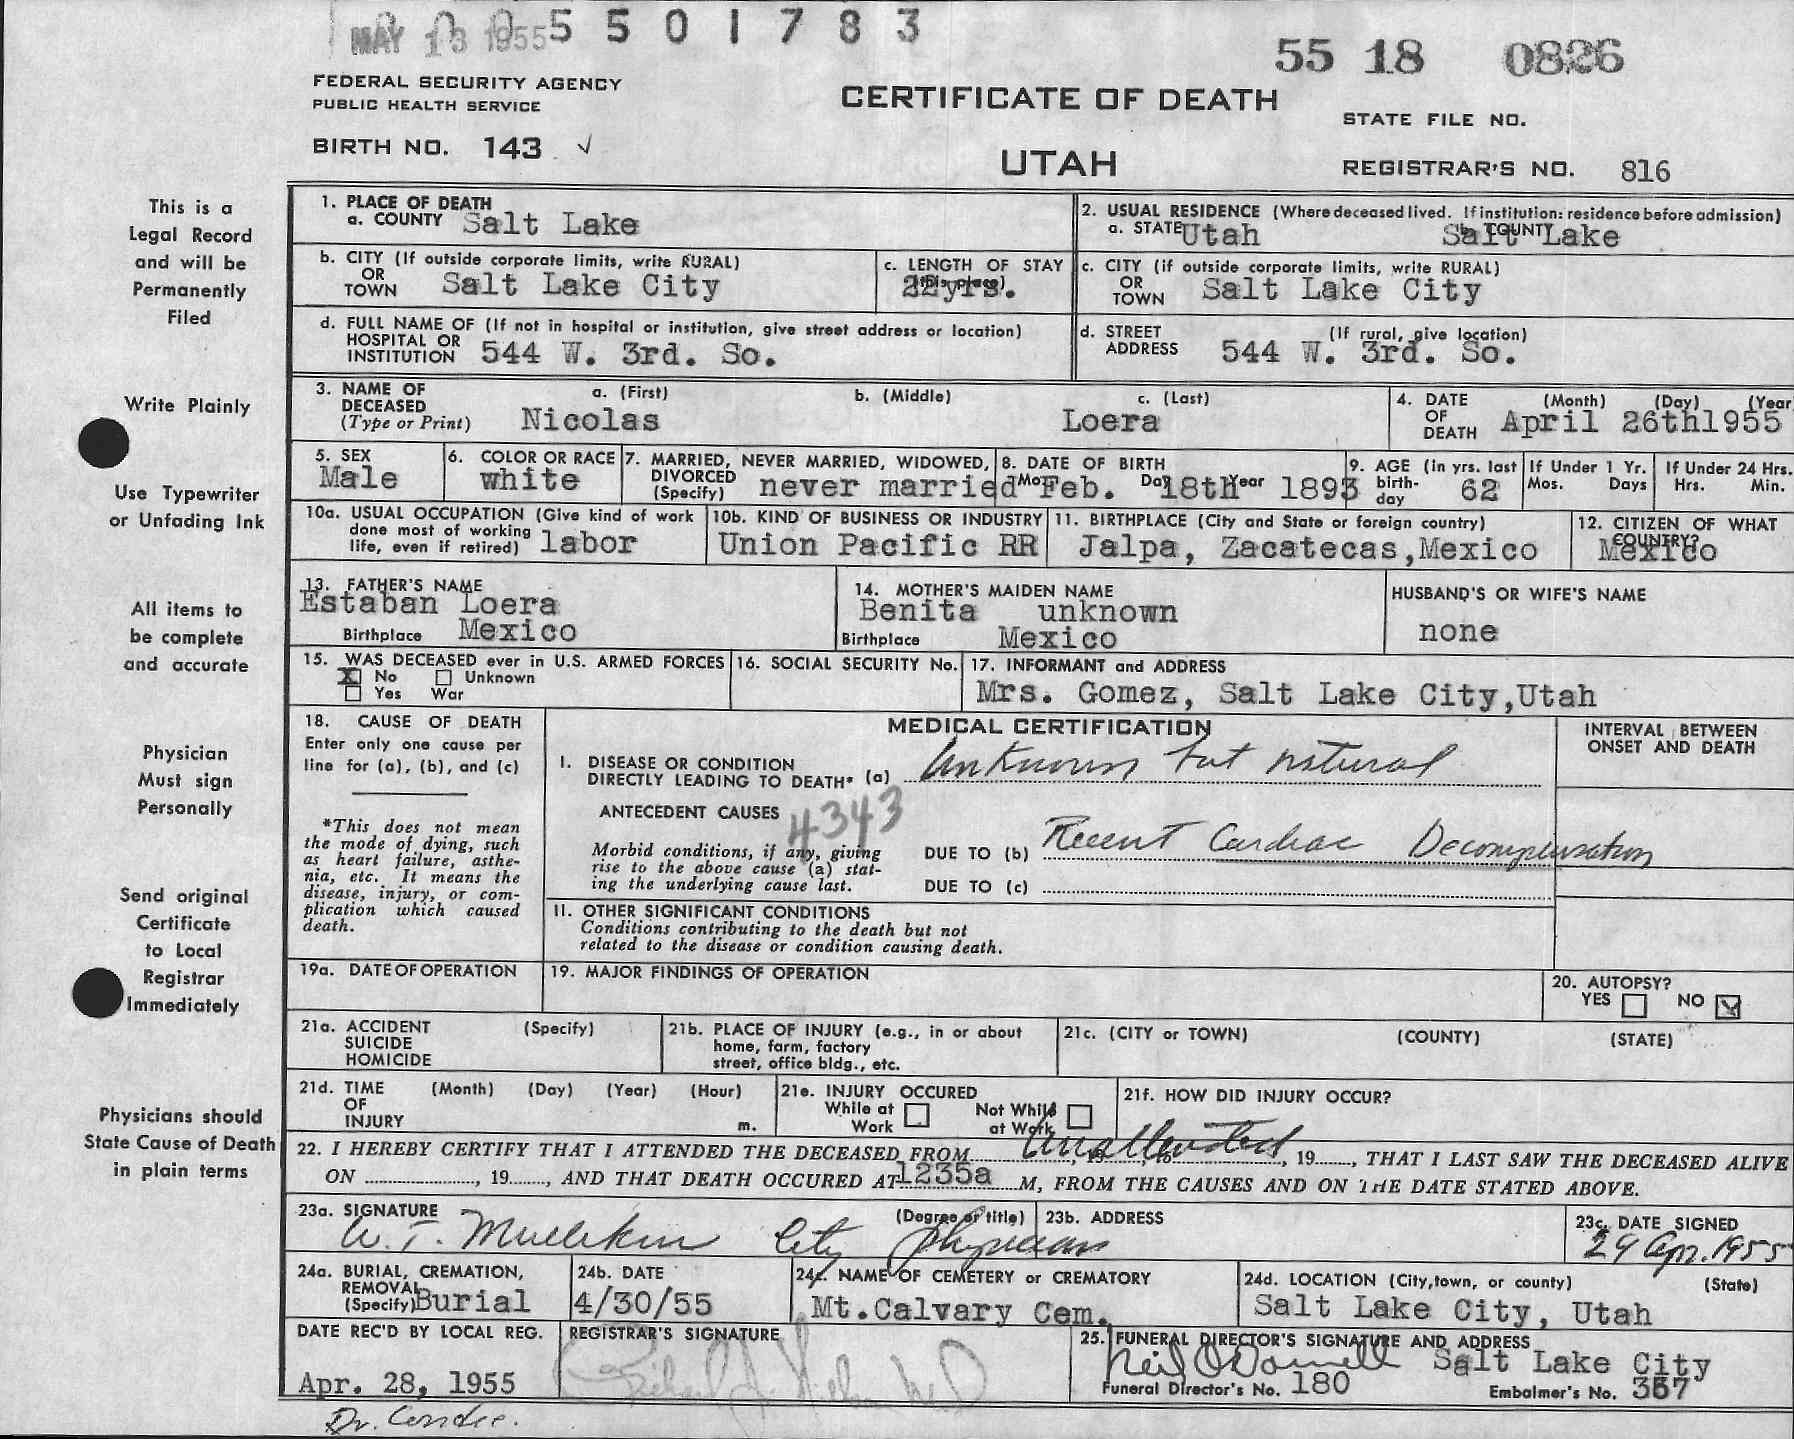 MAY 13 1955 5 5 0 1 7 8 3
55 18 0826
FEDERAL SECURITY AGENCY
PUBLIC HEALTH SERVICE
CERTIFICATE OF DEATH
STATE FILE NO.
BIRTH NO. 143 ✓
UTAH
REGISTRAR'S NO. 816
This is a
Legal Record
and will be
Permanently
Filed
Write Plainly
Use Typewriter
or Unfading Ink
All items to
be complete
and accurate
Physician
Must sign
Personally
Send original
Certificate
to Local
Registrar
Immediately
Physicians should
State Cause of Death
in plain terms
1. PLACE OF DEATH
a. COUNTY Salt Lake
2. USUAL RESIDENCE (Where deceased lived. If institution: residence before admission)
a. STATE Utah b. COUNTY Salt Lake
b. CITY (If outside corporate limits, write RURAL)
OR
TOWN Salt Lake City
c. LENGTH OF STAY
(in this place) 22yrs.
c. CITY (if outside corporate limits, write RURAL)
OR
TOWN Salt Lake City
d. FULL NAME OF (If not in hospital or institution, give street address or location)
HOSPITAL OR
INSTITUTION 544 W. 3rd. So.
d. STREET (If rural, give location)
ADDRESS 544 W. 3rd. So.
3. NAME OF a. (First) b. (Middle) c. (Last)
DECEASED
(Type or Print) Nicolas Loera
4. DATE (Month) (Day) (Year
OF
DEATH April 26th1955
5. SEX
Male
6. COLOR OR RACE
white
7. MARRIED, NEVER MARRIED, WIDOWED,
DIVORCED
(Specify) never married
8. DATE OF BIRTH
Mo. Feb. Day 18th Year 1893
9. AGE (in yrs. last
birth-
day 62
If Under 1 Yr.
Mos. Days
If Under 24 Hrs.
Hrs. Min.
10a. USUAL OCCUPATION (Give kind of work
done most of working
life, even if retired) labor
10b. KIND OF BUSINESS OR INDUSTRY
Union Pacific RR
11. BIRTHPLACE (City and State or foreign country)
Jalpa, Zacatecas,Mexico
12. CITIZEN OF WHAT
COUNTRY?
Mexico
13. FATHER'S NAME
Estaban Loera
Birthplace Mexico
14. MOTHER'S MAIDEN NAME
Benita unknown
Birthplace Mexico
HUSBAND'S OR WIFE'S NAME
none
15. WAS DECEASED ever in U.S. ARMED FORCES
X No Unknown
Yes War
16. SOCIAL SECURITY No.
17. INFORMANT and ADDRESS
Mrs. Gomez, Salt Lake City,Utah
18. CAUSE OF DEATH
Enter only one cause per
line for (a), (b), and (c)
*This does not mean
the mode of dying, such
as heart failure, asthe-
nia, etc. It means the
disease, injury, or com-
plication which caused
death.
MEDICAL CERTIFICATION
INTERVAL BETWEEN
ONSET AND DEATH
I. DISEASE OR CONDITION
DIRECTLY LEADING TO DEATH* (a) Unknown but natural
ANTECEDENT CAUSES
4343
Morbid conditions, if any, giving
rise to the above cause (a) stat-
ing the underlying cause last.
DUE TO (b) Recent Cardiac Decompensation
DUE TO (c)
II. OTHER SIGNIFICANT CONDITIONS
Conditions contributing to the death but not
related to the disease or condition causing death.
19a. DATE OF OPERATION
19. MAJOR FINDINGS OF OPERATION
20. AUTOPSY?
YES NO ✓
21a. ACCIDENT (Specify)
SUICIDE
HOMICIDE
21b. PLACE OF INJURY (e.g., in or about
home, farm, factory
street, office bldg., etc.
21c. (CITY or TOWN) (COUNTY) (STATE)
21d. TIME (Month) (Day) (Year) (Hour)
OF
INJURY m.
21e. INJURY OCCURED
While at Work
Not While at Work
21f. HOW DID INJURY OCCUR?
22. I HEREBY CERTIFY THAT I ATTENDED THE DECEASED FROM Unattended, 19, to, 19, THAT I LAST SAW THE DECEASED ALIVE
ON, 19, AND THAT DEATH OCCURED AT 1235a M, FROM THE CAUSES AND ON THE DATE STATED ABOVE.
23a. SIGNATURE (Degree or title)
W. T. Mullikin City Physician
23b. ADDRESS
23c. DATE SIGNED
29 Apr. 1955
24a. BURIAL, CREMATION,
REMOVAL
(Specify) Burial
24b. DATE
4/30/55
24c. NAME OF CEMETERY or CREMATORY
Mt.Calvary Cem.
24d. LOCATION (City,town, or county) (State)
Salt Lake City, Utah
DATE REC'D BY LOCAL REG.
Apr. 28, 1955
REGISTRAR'S SIGNATURE
25. FUNERAL DIRECTOR'S SIGNATURE AND ADDRESS
Neil O'Donnell Salt Lake City
Funeral Director's No. 180 Embalmer's No. 357
Dr. Condie.